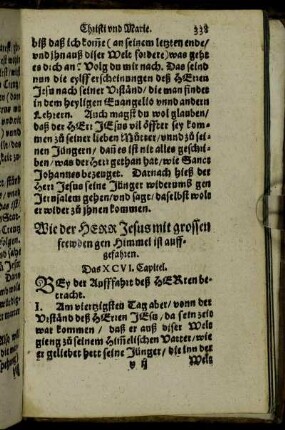 Christi vnd Marie. 338
biß daß ich kom̃e (an seinem letzten ende/
vnd jhn auß diser Welt fordere) was geht
es dich an? Volg du mir nach. Das seind
nun die eylff erscheinungen deß HErren
Jesu nach seiner Vrständ/ die man findet
in dem heyligen Euangelio vnnd andern
Lehrern. Auch magst du wol glauben/
daß der HErr JEsus vil öffter sey kom-
men zů seiner lieben Můtter/ vnnd zů sei-
nen Jüngern/ dañ es ist nit alles geschri-
ben/ was der Herr gethan hat/ wie Sanct
Johannes bezeuget. Darnach hieß der
Herr Jesus seine Jünger widerumb gen
Jerusalem gehen/ vnd sagt/ daselbst wolt
er wider zů jhnen kommen.
Wie der HERR Jesus mit grossen
frewden gen Himmel ist auff-
gefahren.
Das XCVI. Capitel.
BEy der Aufffahrt deß HERren be-
tracht.
I. Am viertzigsten Tag aber/ vonn der
Vrständ deß HErren JESu/ da sein zeit
war kommen/ daß er auß diser Welt
gieng zů seinem Him̃elischen Vatter/ wie
er geliebet hett seine Jünger/ die inn der
v ij Welt